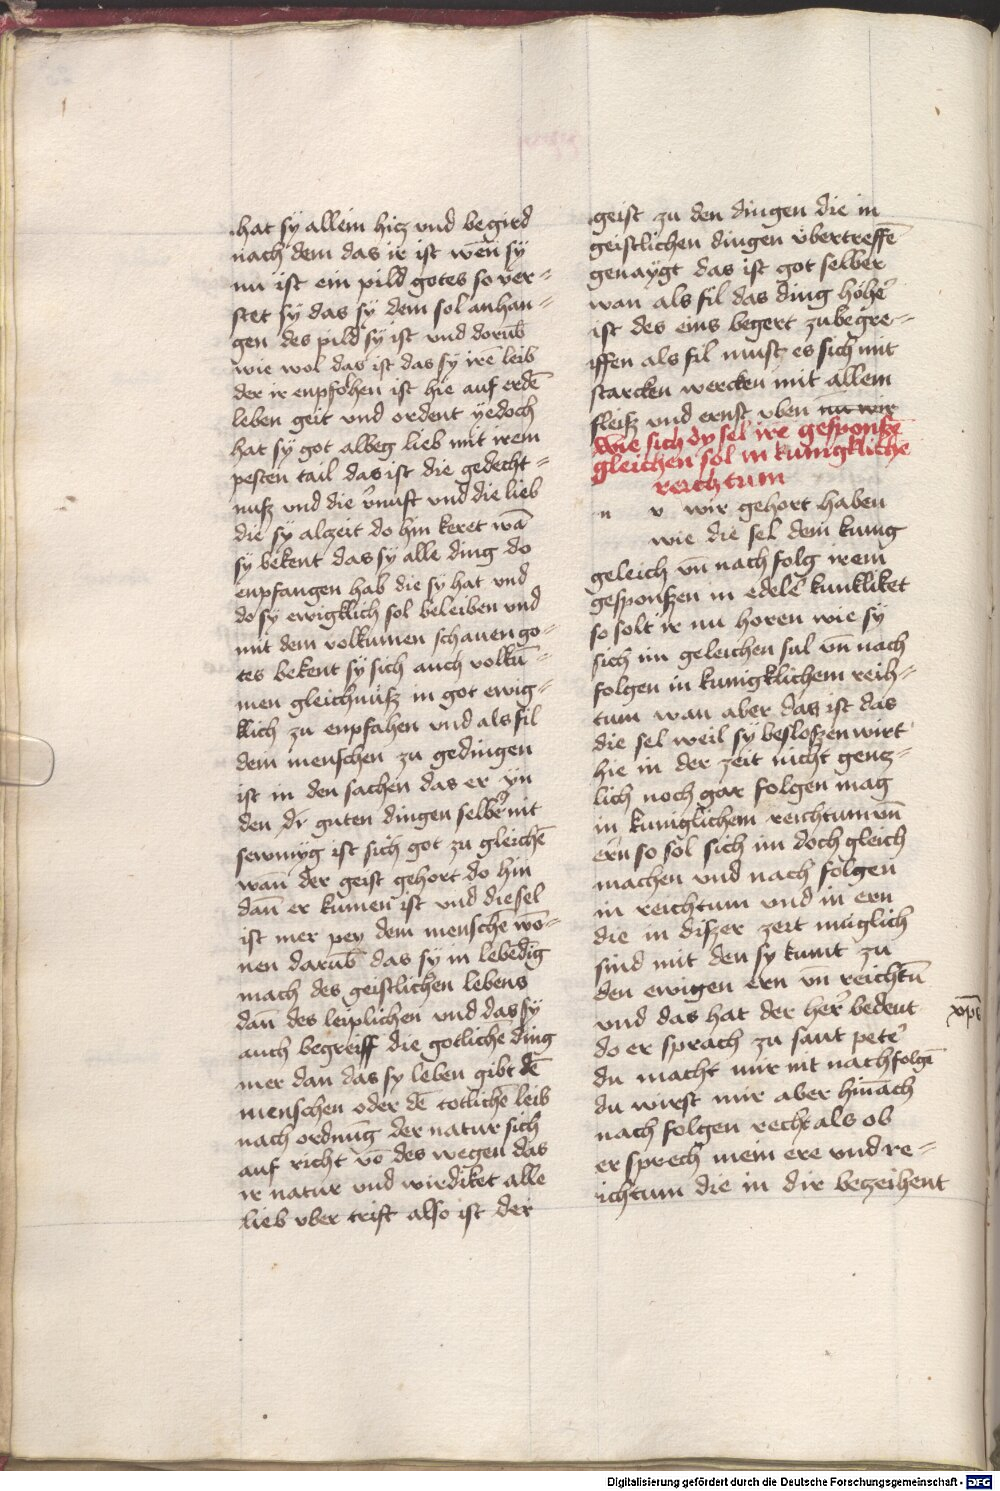 hat sy allein hicz vnd begird
nach dem das ir ist wen̄ sy
nu ist ein pild gotes so ver=
stet sy das sy dem sol anhan=
gen des pild sy ist vnd dorūb
wie wol das ist das sy irē leib
der ir enpfolhen ist hie auf erdē
leben geit vnd ordent yedoch
hat sy got albeg lieb mit irem
pesten tail das ist die gedecht=
nusz vnd die v̄nuft vnd die lieb
die sy alczeit do hin keret wā
sy bekent das sy alle ding do
enpfangen hab die sy hat vnd
do sy ewigklich sol beleiben vnd
mit dem volkumen schauen go=
tes bekent sy sich auch volkū=
men gleichnusz in got ewig=
klich zu enpfahen vnd als fil
dem menschen zu gedingen
ist in den sachen das er yn
den dr̄ guten dingen selber nit
sewmyg ist sich got zu gleichē
wan̄ der geist gehort do hin
dan̄ er kumen ist vnd die sel
ist mer pey dem menschē wo=
nen darūb das sy in lebedig
mach des geistlichen lebens
dan̄ des leiplichen vnd das sy
auch begreiff die gotliche ding
mer dan das sy leben gibt dē
menschen oder dē totlichē leib
nach ordnūg der natur sich
auf richt vō des wegen das
ir natur vnd wirdiket alle
lieb vber trift also ist der
geist zu den dingen die in
geistlichen dingen vbertreffē
genaygt das ist got selber
wan als fil das ding höher
ist des eins begert zubegre=
iffen als fil musz es sich mit
starcken wercken mit allem
fleisz vnd ernst vben nu wir
Wie sich dy sel irē gesponszē
gleichen sol in kunigklichē
reichtum
n v wir gehort haben
wie die sel dem kunig
geleich vn̄ nach folg irem
gesponszen in edelē kunkliket
so solt ir nu horen wie sy
sich im geleichen sal vn̄ nach
folgen in kunigklichem reih=
tum wan aber das ist das
die sel weil sy besloszen wirt
hie in der zeit nicht gencz=
lich noch gar folgen mag
in kuniglichem reichtum vn̄
ern so sol sich im doch gleich
machen vnd nach folgen
in reichtum vnd in ern
die in diszer zeit muglich
sind mit den sy kumt zu
den ewigen ern vn̄ reichtū
vnd das hat der her bedeut
xpi
do er sprach zu sant peter
du macht mir nit nachfolgē
du wirst mir aber hin̄ach
nach folgen recht als ob
er sprech mein ere vnd re=
ichtum die in dir beczeihent
Digitalisierung gefördert durch die Deutsche Forschungsgemeinschaft - DFG